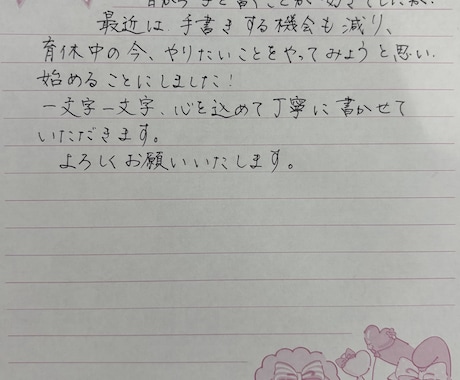 昔から字を書くことが好きでしたが、
最近は手書きする機会も減り、
育休中の今、やりたいことをやってみようと思い、
始めることにしました！
一文字一文字、心を込めて丁寧に書かせて
いただきます。
よろしくお願いいたします。